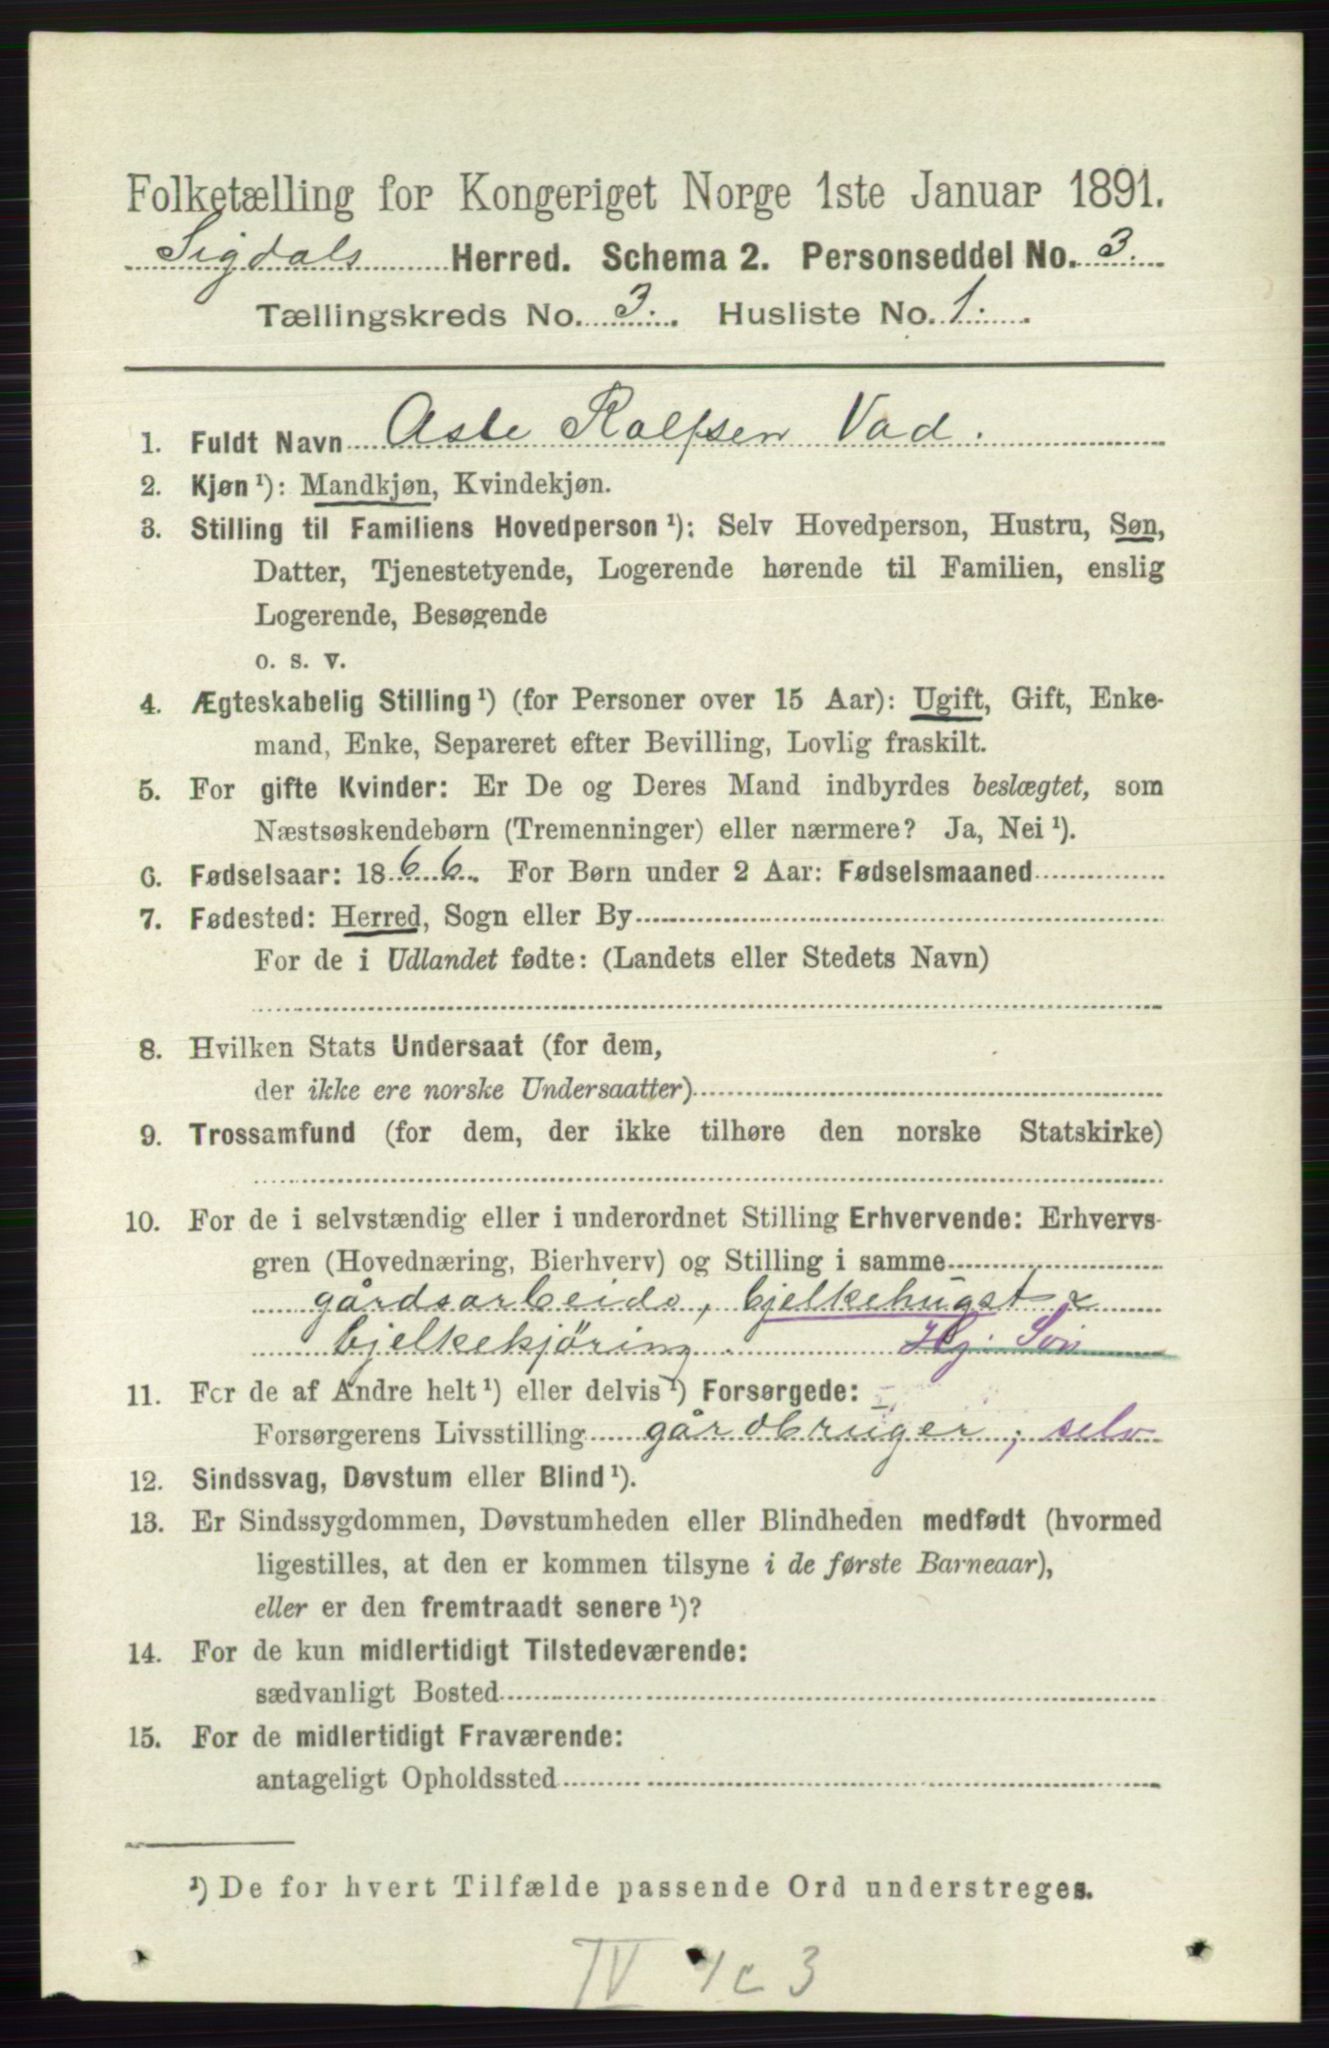 Folketælling for Kongeriget Norge 1ste Januar 1891.
Sigdals Herred. Schema 2. Personseddel No. 3.
Tællingskreds No. 3. Husliste No. 1.
1. Fuldt Navn Asle Rolfsen Vad.
2. Kjøn ¹): Mandkjøn, Kvindekjøn.
3. Stilling til Familiens Hovedperson ¹): Selv Hovedperson, Hustru, Søn,
Datter, Tjenestetyende, Logerende hørende til Familien, enslig
Logerende, Besøgende
o. s. v.
4. Ægteskabelig Stilling ¹) (for Personer over 15 Aar): Ugift, Gift, Enke-
mand, Enke, Separeret efter Bevilling, Lovlig fraskilt.
5. For gifte Kvinder: Er De og Deres Mand indbyrdes beslægtet, som
Næstsøskendebørn (Tremenninger) eller nærmere? Ja, Nei ¹).
6. Fødselsaar: 1866. For Børn under 2 Aar: Fødselsmaaned
7. Fødested: Herred, Sogn eller By
For de i Udlandet fødte: (Landets eller Stedets Navn)
8. Hvilken Stats Undersaat (for dem,
der ikke ere norske Undersaatter)
9. Trossamfund (for dem, der ikke tilhøre den norske Statskirke)
10. For de i selvstændig eller i underordnet Stilling Erhvervende: Erhvervs-
gren (Hovednæring, Bierhverv) og Stilling i samme
gårdsarbeide, bjelkehugst &
bjelkekjöring. Hj. Søn
11. For de af Andre helt ¹) eller delvis ¹) Forsørgede:
Forsørgerens Livsstilling gårdbruger; selv
12. Sindssvag, Døvstum eller Blind ¹).
13. Er Sindssygdommen, Døvstumheden eller Blindheden medfødt (hvormed
ligestilles, at den er kommen tilsyne i de første Barneaar),
eller er den fremtraadt senere ¹)?
14. For de kun midlertidigt Tilstedeværende:
sædvanligt Bosted
15. For de midlertidigt Fraværende:
antageligt Opholdssted
¹) De for hvert Tilfælde passende Ord understreges.
IV 1c 3